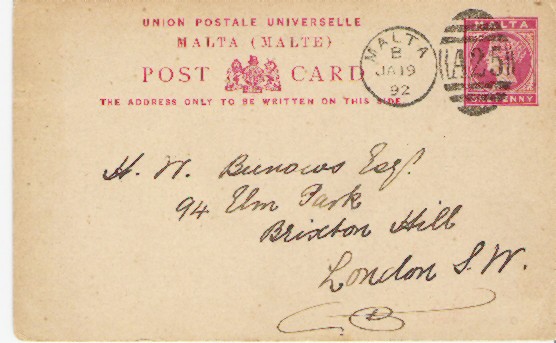 UNION POSTALE UNIVERSELLE
MALTA (MALTE)
POST CARD
THE ADDRESS ONLY TO BE WRITTEN ON THIS SIDE
MALTA
B
JA 19
92
A25
MALTA
ONE PENNY
H. W. Bunows Esqr.
94 Elm Park
Brixton Hill
London S.W.